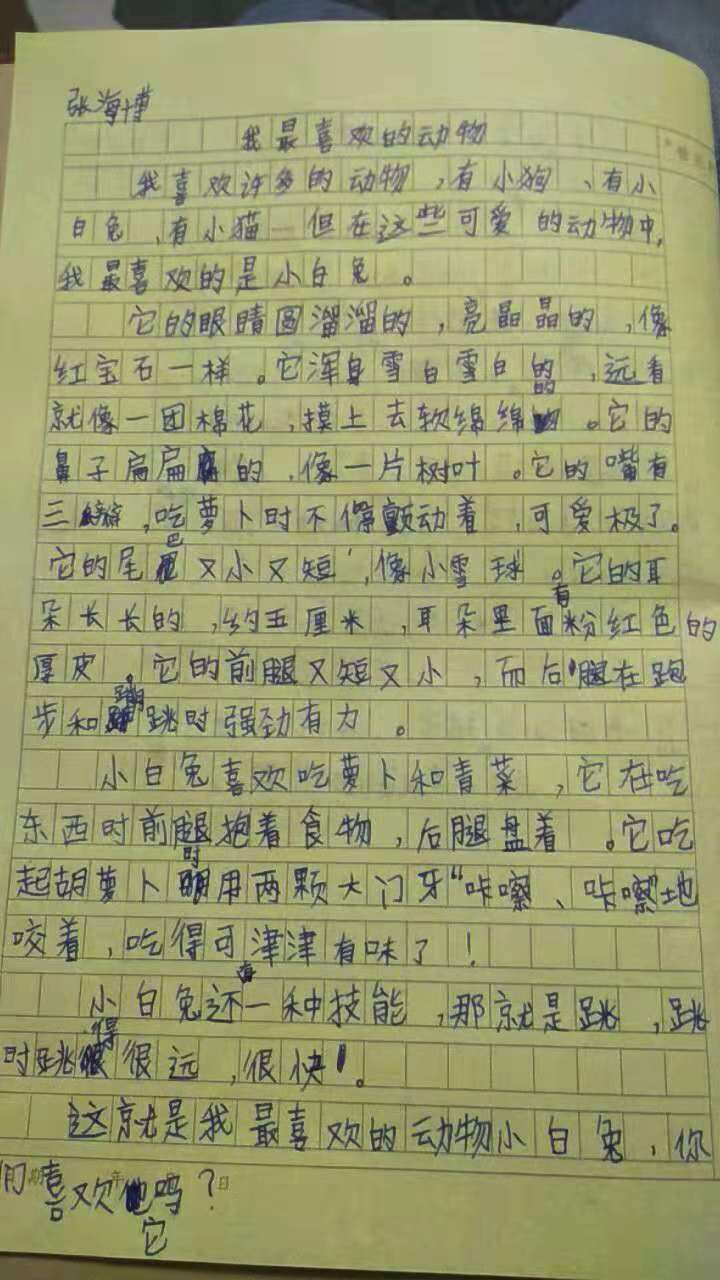 张海博
我最喜欢的动物
我喜欢许多的动物,有小狗、有小
白兔,有小猫一但在这些可爱的动物中,
我最喜欢的是小白兔。
它的眼睛圆溜溜的,亮晶晶的,像
红宝石一样。它浑身雪白雪白的,远看
就像一团棉花,摸上去软绵绵的。它的
鼻子扁扁的,像一片树叶。它的嘴有
三瓣,吃萝卜时不停颤动着,可爱极了。
它的尾巴又小又短,像小雪球。它的耳
朵长长的,约五厘米,耳朵里面有粉红色的
厚皮。它的前腿又短又小,而后腿在跑
步和蹦跳时强劲有力。
小白兔喜欢吃萝卜和青菜,它在吃
东西时前腿抱着食物,后腿盘着。它吃
起胡萝卜时用两颗大门牙“咔嚓、咔嚓”地
咬着,吃得可津津有味了!
小白兔还有一种技能,那就是跳,跳
时跳得很远,很快。
这就是我最喜欢的动物小白兔,你
们喜欢它吗?